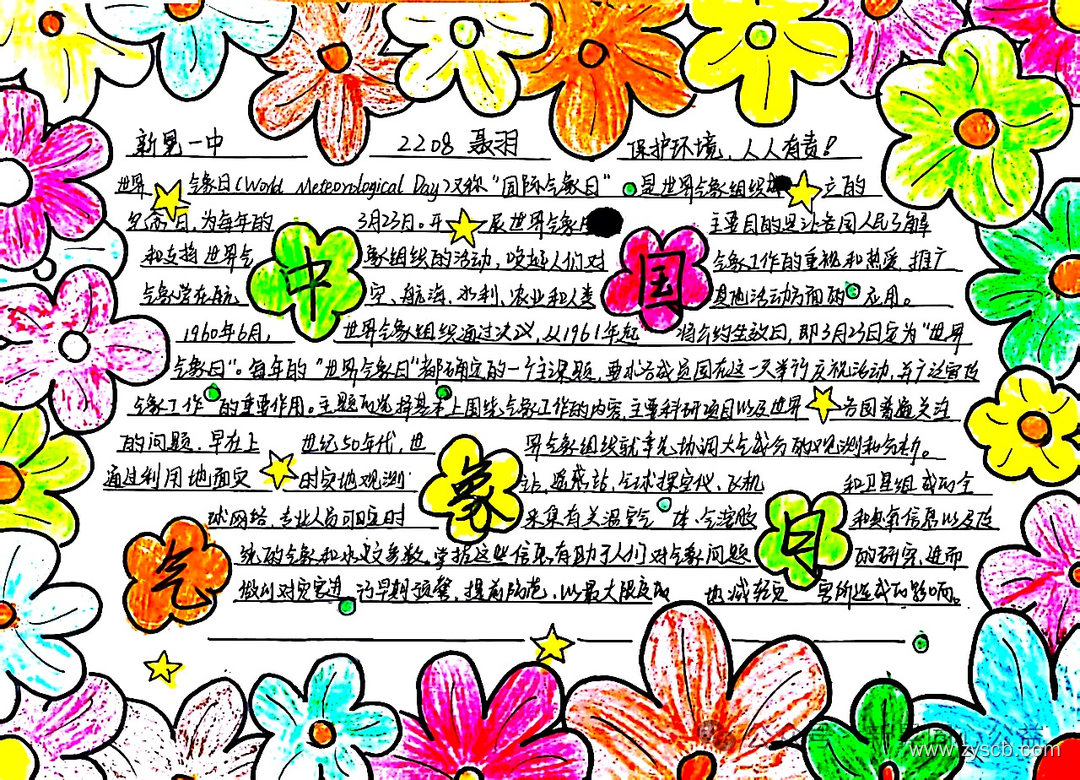 新晃一中 2208 聂羽 保护环境，人人有责！
世界气象日(World Meteorological Day)又称“国际气象日” 是世界气象组织 立的
纪念日，为每年的3月23日。开展世界气象 主要目的是让各国人民了解
和支持世界气象组织的活动，唤起人们对气象工作的重视和热爱，推广
气象学在航空、航海、水利、农业和人类其他活动方面的应用。
1960年6月，世界气象组织通过决议，从1961年起 将公约生效日，即3月23日定为“世界
气象日”。每年的“世界气象日”都确定的一个主课题，要求各成员国在这一天举行庆祝活动，并广泛宣传
气象工作的重要作用。主题的选择基本上围绕气象工作的内容，主要科研项目以及世界各国普遍关注
的问题。早在上世纪50年代，世界气象组织就率先协调大气成分的观测和分析。
通过利用地面实时实地观测站，遥感站，气球探空仪、飞机和卫星组成的全
球网络，专业人员可随时采集有关温室气体、气溶胶和臭氧信息以及传
统的气象和水文参数。掌握这些信息有助于人们对气象问题的研究，进而
做到对灾害进行早期预警，提前防范，以最大限度的 地减轻灾害所造成的影响。
中
国
气
象
日
www.zyscb.com